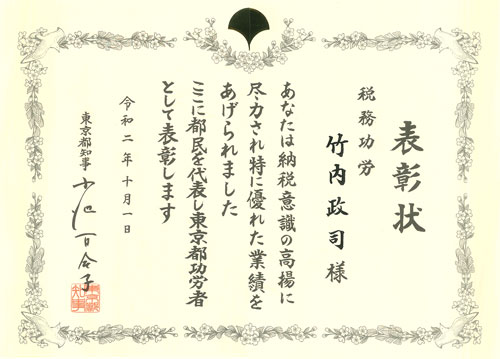 表彰状
税務功労
竹内政司様
あなたは納税意識の高揚に
尽力され特に優れた業績を
あげられました
ここに都民を代表し東京都功労者
として表彰します
令和二年十月一日
東京都知事 小池百合子
東京都
知事